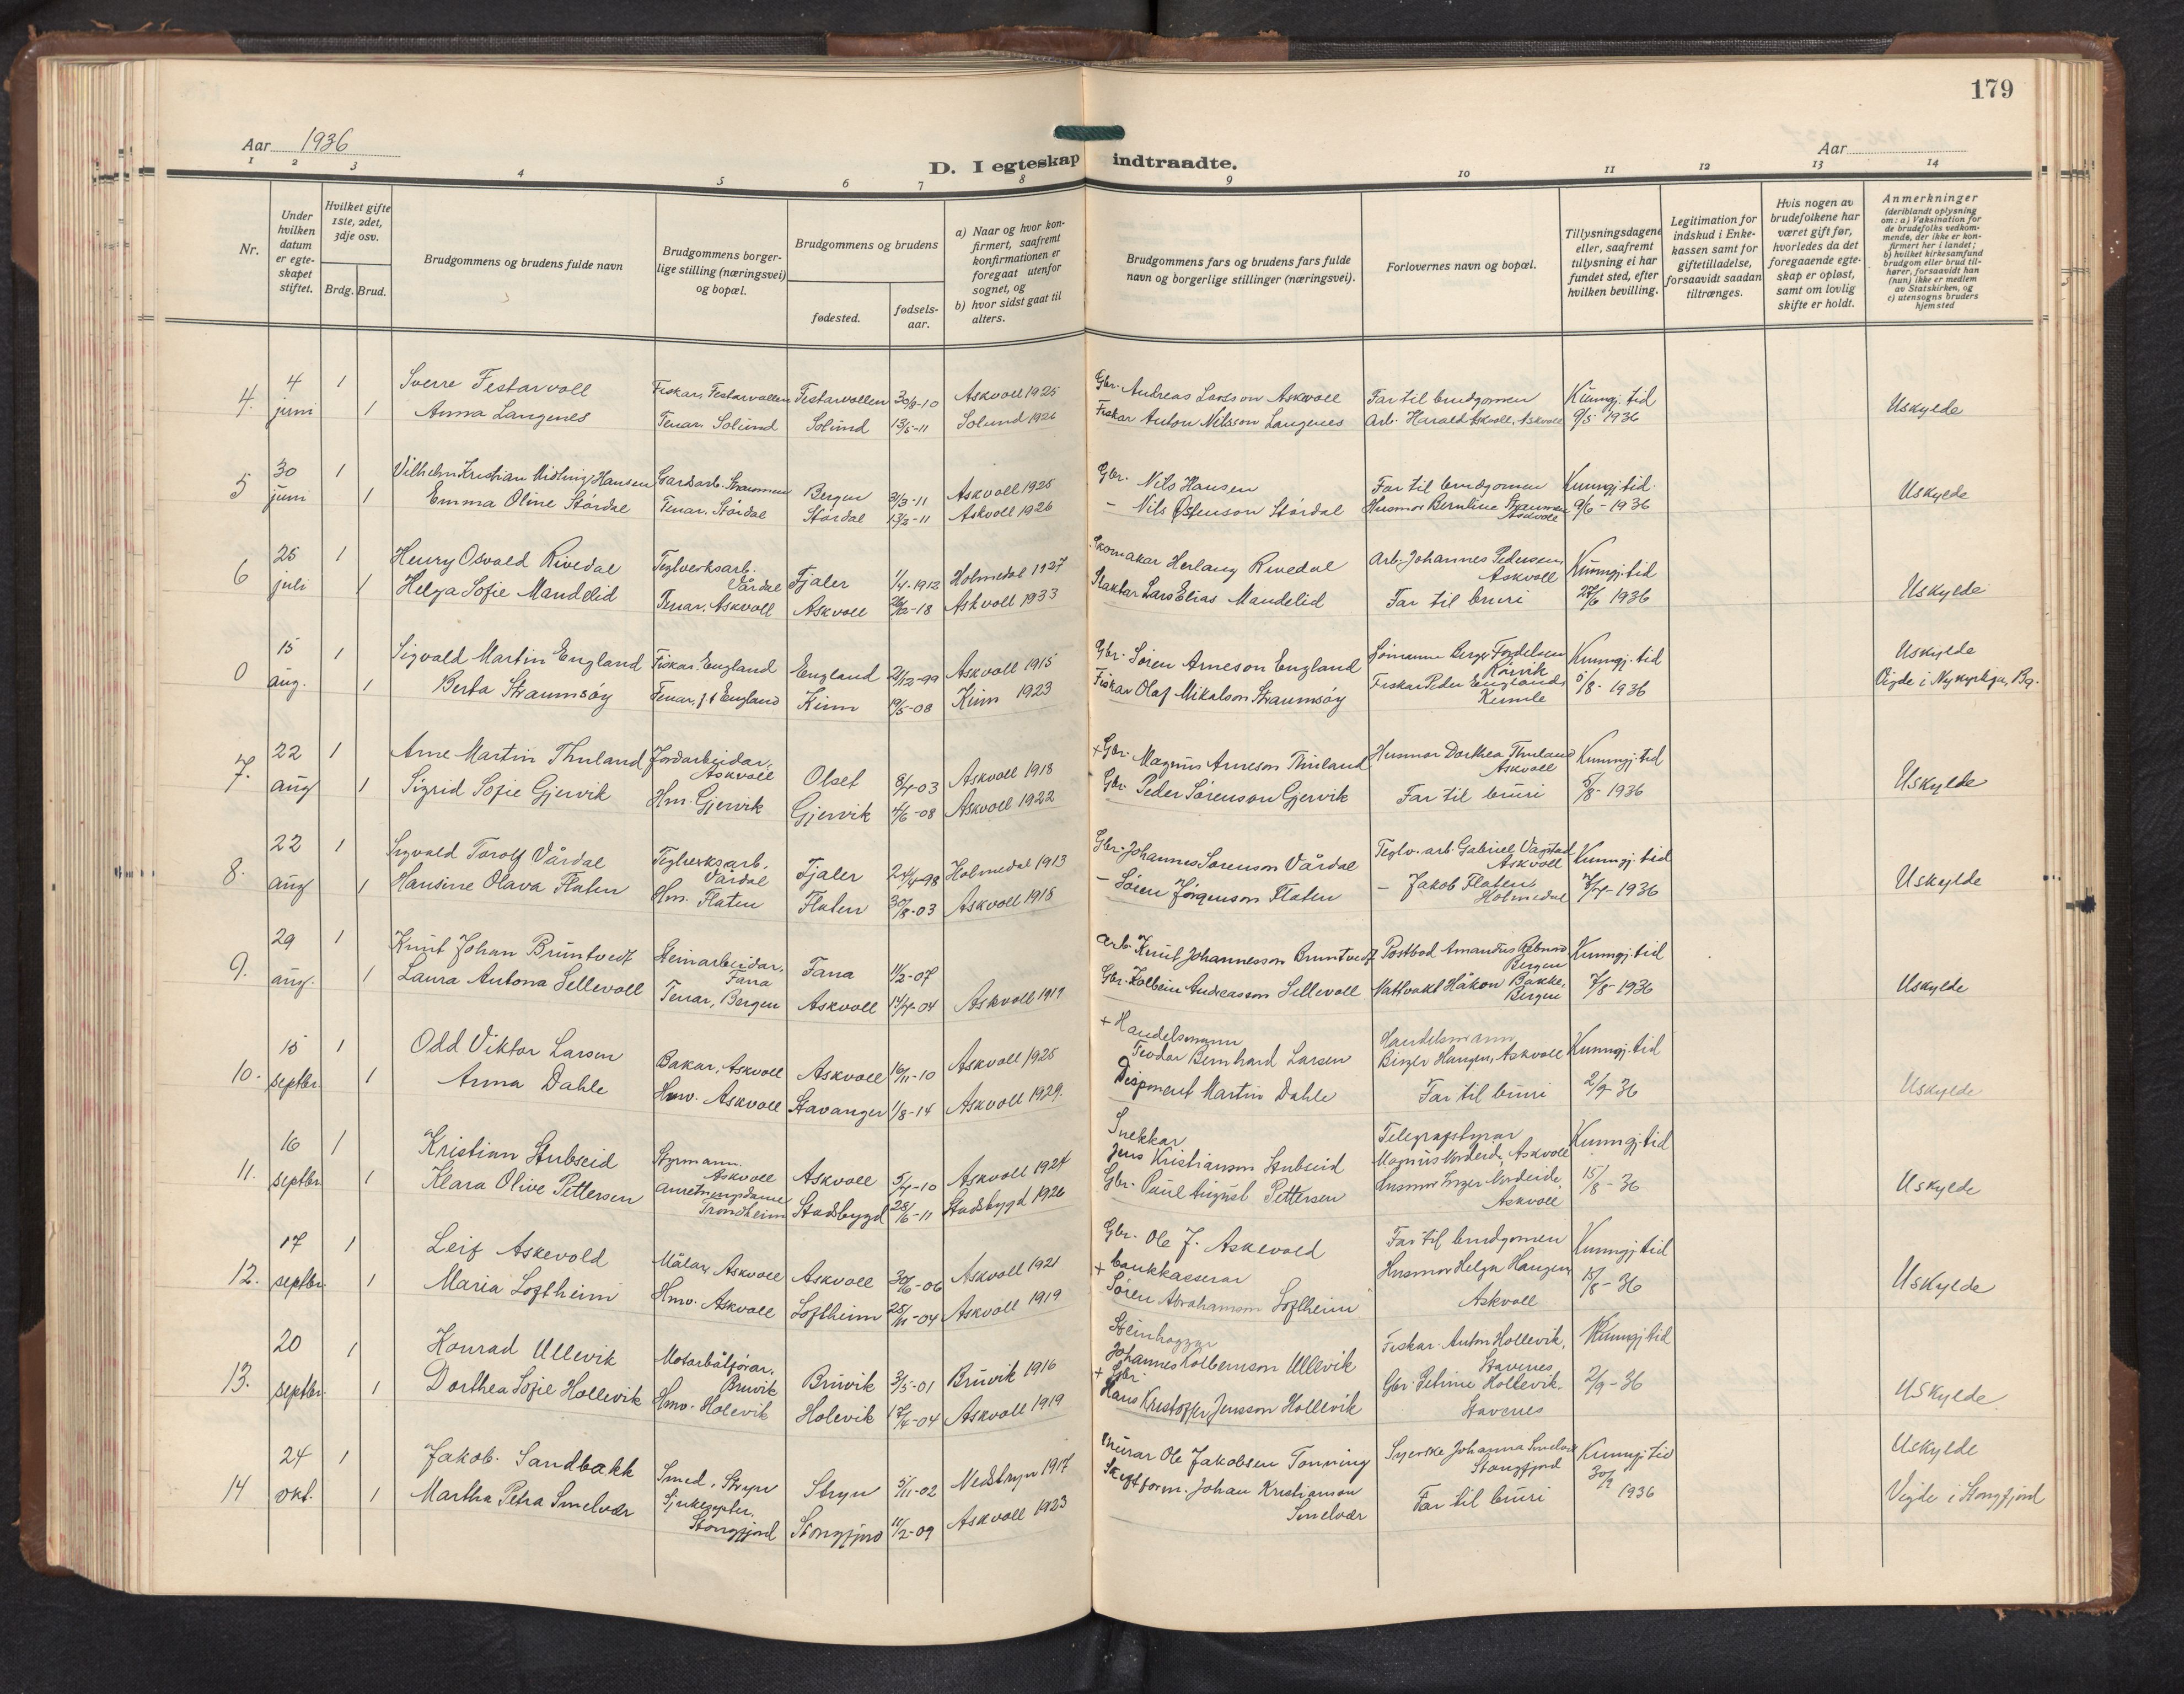 179
Aar 1936
Aar
D. I egteskap indtraadte.
1 2 3 4 5 6 7 8 9 10 11 12 13 14
Nr.
Under hvilken datum er egte-skapet stiftet.
Hvilket gifte 1ste, 2det, 3dje osv.
Brdg. Brud.
Brudgommens og brudens fulde navn
Brudgommens borger-lige stilling (næringsvei) og bopæl.
Brudgommens og brudens
fødested.
fødsels-aar.
a) Naar og hvor kon-firmert, saafremt konfirmationen er foregaat utenfor sognet, og
b) hvor sidst gaat til alters.
Brudgommens fars og brudens fars fulde navn og borgerlige stillinger (næringsvei).
Forlovernes navn og bopæl.
Tillysningsdagene eller, saafremt tillysning ei har fundet sted, efter hvilken bevilling.
Legitimation for indskud i Enke-kassen samt for giftetilladelse, forsaavidt saadan tiltrænges.
Hvis nogen av brudefolkene har været gift før, hvorledes da det foregaaende egte-skap er opløst, samt om lovlig skifte er holdt.
Anmerkninger
(deriblandt oplysning om: a) Vaksination for de brudefolks vedkom-mende, der ikke er kon-firmert her i landet; b) hvilket kirkesamfund brudgom eller brud til-hører, forsaavidt han (hun) ikke er medlem av Statskirken, og c) utensogns bruders hjemsted
4. 4 juni 1 Sverre Festarvoll Fiskar, Festarvollen Festarvollen 30/9-10 Askvoll 1925 Gbr. Andreas Larsson Askvoll Far til brudgomen Kunngj. tid
1 Anna Langenes Tenar, Solund Solund 13/5-11 Solund 1926 Fiskar Anton Nilsson Langenes Arb. Harald Askvoll, Askvoll 9/5 1936 Uskylde
5 30 juni 1 Vilhelm Kristian Midling Hansen Gardsarb. Straumen Bergen 31/3-11 Askvoll 1925 Gbr. Nils Hansen Far til brudgomen Kunngj. tid
1 Emma Oline Stórdal Tenar, Stórdal Stórdal 13/2-11 Askvoll 1926 – Nils Ostenson Stórdal Husmor Bernline Straumen Askvoll 9/6 - 1936 Uskylde
6 25 juli 1 Henry Osvald Rivedal Teglverksarb. Vårdal Fjaler 1/4-1912 Holmedal 1927 Skomakar Herlaug Rivedal Arb. Johannes Pedersen, Askvoll Kunngj. tid
1 Helga Sofie Mandelid Tenar, Askvoll Askvoll 26/12-18 Askvoll 1933 Slaktar Lars Elias Mandelid Far til bruri 27/6 1936 Uskylde
0 15 aug. 1 Sigvald Martin England Fiskar England England 21/12-99 Askvoll 1915 Gbr. Sóren Arneson England Kunngj. tid Uskylde
1 Berta Straumsøy Tenar, England Kinn 19/5-08 Kinn 1923 Fiskar Olaf Mikalson Straumsøy Fiskar Peder England 5/8 - 1936 Vigde i Nykyrkja, Bg.
7. 22 aug 1 Arne Martin Thuland Jordarbeidar, Askvoll Olset 8/4-03 Askvoll 1918 + Gbr. Magnus Arneson Thuland Husmor Dorthea Thuland Askvoll Kunngj. tid
1 Sigrid Sofie Gjervik Hm. Gjervik Gjervik 4/6-08 Askvoll 1922 Gbr. Peder Sørenson Gjervik Far til bruri 5/8 - 1936 Uskylde
8. 22 aug 1 Sigvald Torolf Vårdal Teglverksarb. Vårdal Fjaler 24/4-98 Holmedal 1913 Gbr. Johannes Sorenson Vårdal Teglv. arb. Gabriel Vagstad Askvoll Kunngj. tid
1 Hansine Olava Flaten Hm. Flaten Flaten 30/8-03 Askvoll 1918 – Sóren Jørgenson Flaten – Jakob Flaten, Holmedal 1936 Uskylde
9. 29 aug. 1 Knut Johan Bruntvedt Steinarbeidar, Fana Fana 11/2-07 Arb. Knut Johannesson Bruntvedt Postbod Amandus Bergen Kunngj tid
1 Laura Antona Sellevoll Tenar, Bergen Askvoll 14/4-04 Askvoll 1919 Gbr. Kolbein Andreasson Sellevoll Nattvakt Håkon Bakke, Bergen 7/8 - 1936 Uskylde
10. 15 septbr. 1 Odd Viktor Larsen Bakar, Askvoll Askvoll 16/11-10 Askvoll 1925 + Handelsmann Teodor Bernhard Larsen Handelsmann Birger Haugen, Askvoll Kunngj. tid
1 Anna Dahle Hmv. Askvoll Stavanger 1/8-14 Askvoll 1929. Disponent Martin Dahle Far til bruri 2/9 - 36 Uskylde
11. 16 septbr 1 Kristian Stubseid Styrmann. Askvoll Askvoll 5/4-10 Askvoll 1924 Snekkar Jens Kristianson Stubseid Telegrafstyrar Magnus Norderd, Askvoll Kunngj. tid
1 Klara Olive Pettersen Anretningsdame Trondheim Stadsbygd 28/6-11 Stadsbygd 1926 Gbr. Paul August Pettersen Husmor Inger Nordeide, Askvoll 15/8 - 36 Uskylde
12. 17 septbr. 1 Leif Askevold Målar, Askvoll Askvoll 30/6-06 Askvoll 1921 Gbr. Ole J. Askevold Far til brudgomen Kunngj. tid
1 Maria Loftheim Hmv. Askvoll Loftheim 25/11-04 Askvoll 1919 + bankkasserar Søren Abrahamson Loftheim Husmor Helga Haugen Askvoll 15/8 - 36 Uskylde
13. 20 septbr. 1 Konrad Ullevik Motorbåtførar, Bruvik Bruvik 3/5-01 Bruvik 1916 Steinhoggar Johannes Kolbernson Ullevik Fiskar. Anton Hollevik, Stavenes Kunngj. tid
1 Dorthea Sofie Hollevik Hmv. Holevik Holevik 17/6-04 Askvoll 1919 + Gbr. Hans Kristoffer Jensson Hollevik Gbr. Petrine Hollevik. Stavenes 2/9 - 36 Uskylde.
14 24 okt. 1 Jakob. Sandbakk Smed, Stryn Stryn 5/11-02 Nedstryn 1917 Murar Ole Jakobsen Tonning Syerske Johanna Smelvær Stongfjord Kunngj. tid Uskylde
1 Martha Petra Smelvær Sjukesyster, Stongfjord Stongfjord 11/2-09 Askvoll 1923 Skiftform. Johan Kristianson Smelvær Far til bruri 30/9 1936 Vigde i Stongfjord